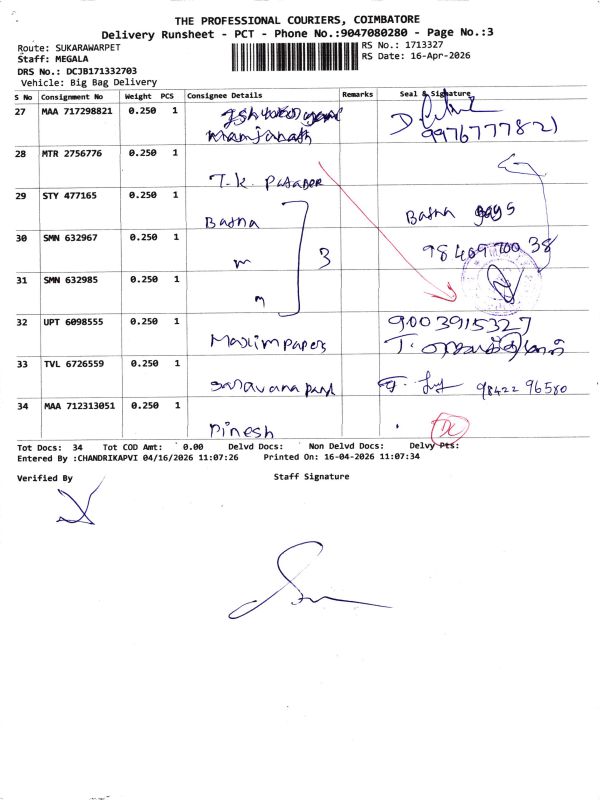 THE PROFESSIONAL COURIERS, COIMBATORE
Delivery Runsheet - PCT - Phone No.:9047080280 - Page No.:3
Route: SUKARAWARPET
Staff: MEGALA
DRS No.: DCJB171332703
Vehicle: Big Bag Delivery
RS No.: 1713327
RS Date: 16-Apr-2026
S No Consignment No Weight PCS Consignee Details Remarks Seal & Signature
27 MAA 717298821 0.250 1 Manjanath
28 MTR 2756776 0.250 1 T.K.
29 STY 477165 0.250 1 Batna Batna Bags
30 SMN 632967 0.250 1 " 3
31 SMN 632985 0.250 1 "
32 UPT 6098555 0.250 1 Maxim papers 9003915327
33 TVL 6726559 0.250 1 Saravana 98422 96580
34 MAA 712313051 0.250 1 Dinesh DC
Tot Docs: 34 Tot COD Amt: 0.00 Delvd Docs: Non Delvd Docs: Delvy Pts:
Entered By :CHANDRIKAPVI 04/16/2026 11:07:26 Printed On: 16-04-2026 11:07:34
Verified By Staff Signature